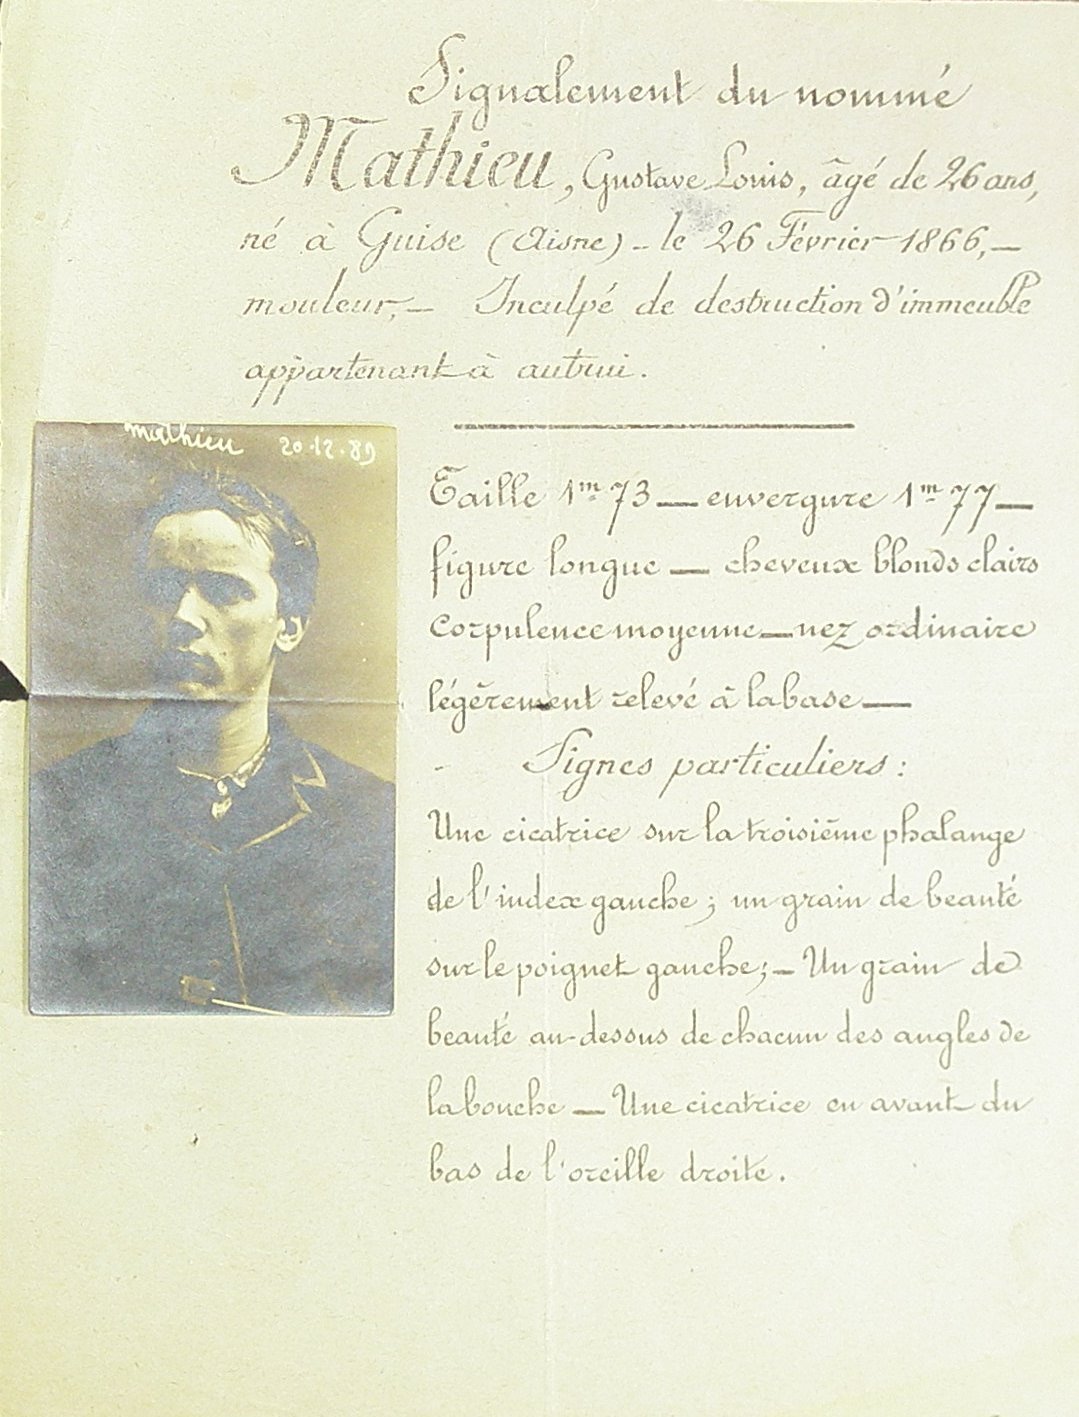 Signalement du nommé
Mathieu, Gustave Louis, âgé de 26 ans,
né à Guise (Aisne) - le 26 Février 1866,-
mouleur,- Inculpé de destruction d'immeuble
appartenant à autrui.
mathieu 20.12.89
Taille 1m73 — envergure 1m77 —
figure longue — cheveux blonds clairs
corpulence moyenne — nez ordinaire
légèrement relevé à la base —
- Signes particuliers :
Une cicatrice sur la troisième phalange
de l'index gauche ; un grain de beauté
sur le poignet gauche ;- Un grain de
beauté au-dessus de chacun des angles de
la bouche — Une cicatrice en avant du
bas de l'oreille droite.